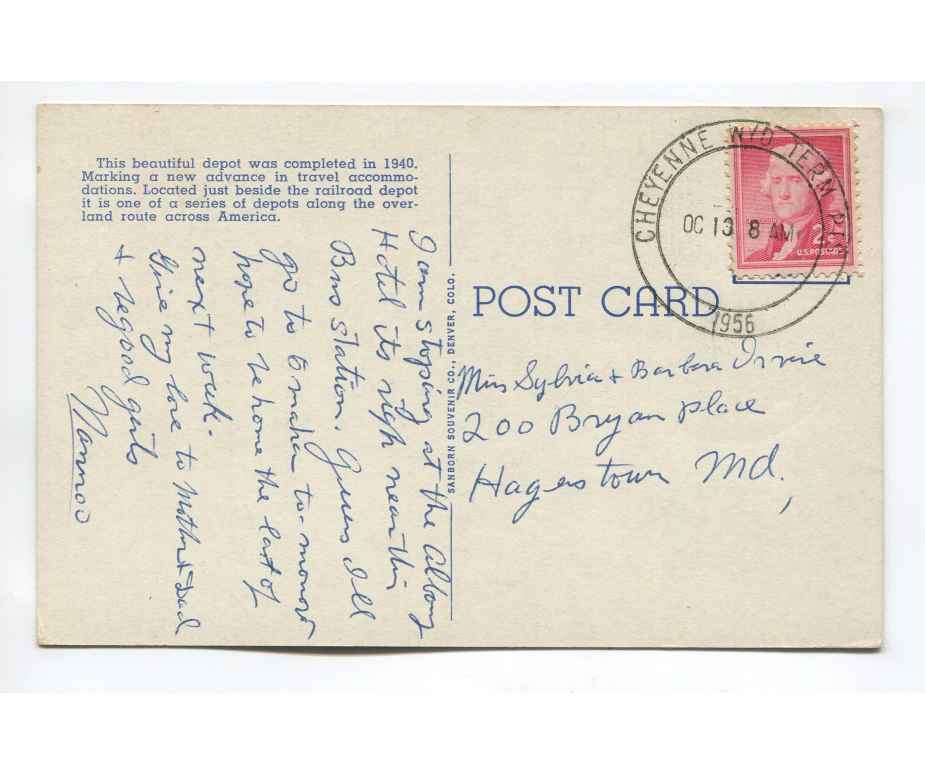 This beautiful depot was completed in 1940.
Marking a new advance in travel accommo-
dations. Located just beside the railroad depot
it is one of a series of depots along the over-
land route across America.
I am stoping at the Albany
Hotel its righ near this
Bus Station. Guess I ll
go to Omaha to-morrow
hope to be home the last of
next week.
Give my love to Mother + Dad
+ be good girls
SANBORN SOUVENIR CO., DENVER, COLO.
CHEYENNE WYO TERM
OC 10 8 AM
1956
2¢
U.S. POSTAGE
POST CARD
Miss Sylvia + Barbara Irvin
200 Bryan place
Hagerstown Md,